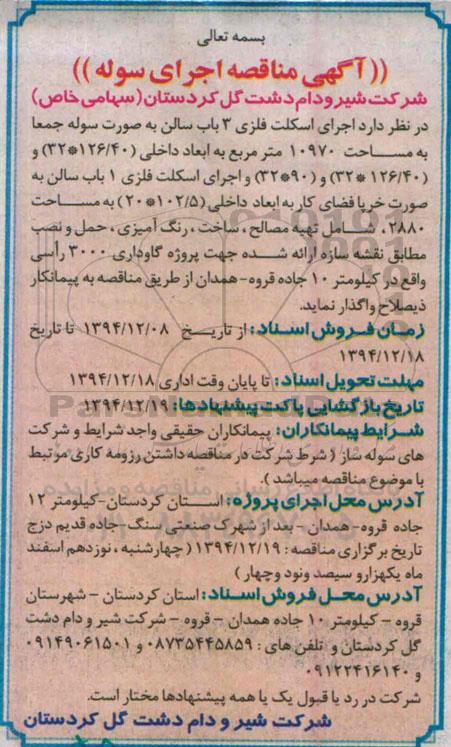 بسمه تعالی
((آگهی مناقصه اجرای سوله))
شرکت شیر و دام دشت گل کردستان (سهامی خاص)
در نظر دارد اجرای اسکلت فلزی ۳ باب سالن به صورت سوله جمعا
به مساحت ۱۰۹۷۰ متر مربع به ابعاد داخلی (۱۲۶/۴۰*۳۲) و
(۱۲۶/۴۰*۳۲) و (۹۰*۳۲) و اجرای اسکلت فلزی ۱ باب سالن به
صورت خرپا فضای کار به ابعاد داخلی (۱۰۲/۵*۲۰) به مساحت
۲۸۸۰، شامل تهیه مصالح، ساخت، رنگ آمیزی، حمل و نصب
مطابق نقشه سازه ارائه شده جهت پروژه گاوداری ۳۰۰۰ رأسی
واقع در کیلومتر ۱۰ جاده قروه-همدان از طریق مناقصه به پیمانکار
ذیصلاح واگذار نماید.
زمان فروش اسناد: از تاریخ ۱۳۹۴/۱۲/۰۸ تا تاریخ
۱۳۹۴/۱۲/۱۸
مهلت تحویل اسناد: تا پایان وقت اداری ۱۳۹۴/۱۲/۱۸
تاریخ بازگشایی پاکت پیشنهادها: ۱۳۹۴/۱۲/۱۹
شرایط پیمانکاران: پیمانکاران حقیقی واجد شرایط و شرکت
های سوله ساز (شرط شرکت در مناقصه داشتن رزومه کاری مرتبط
با موضوع مناقصه میباشد)
آدرس محل اجرای پروژه: استان کردستان-کیلومتر ۱۲
جاده قروه-همدان - بعد از شهرک صنعتی سنگ-جاده قدیم دزج
تاریخ برگزاری مناقصه: ۱۳۹۴/۱۲/۱۹ (چهارشنبه، نوزدهم اسفند
ماه یکهزارو سیصد ونود وچهار)
آدرس محل فروش اسناد: استان کردستان - شهرستان
قروه - کیلومتر ۱۰ جاده همدان - قروه - شرکت شیر و دام دشت
گل کردستان و تلفن های: ۰۸۷۳۵۴۴۵۸۵۹ و ۰۹۱۴۹۰۶۱۵۰۱
و ۰۹۱۲۲۴۱۶۱۴۰
شرکت در رد یا قبول یک یا همه پیشنهادها مختار است.
شرکت شیر و دام دشت گل کردستان